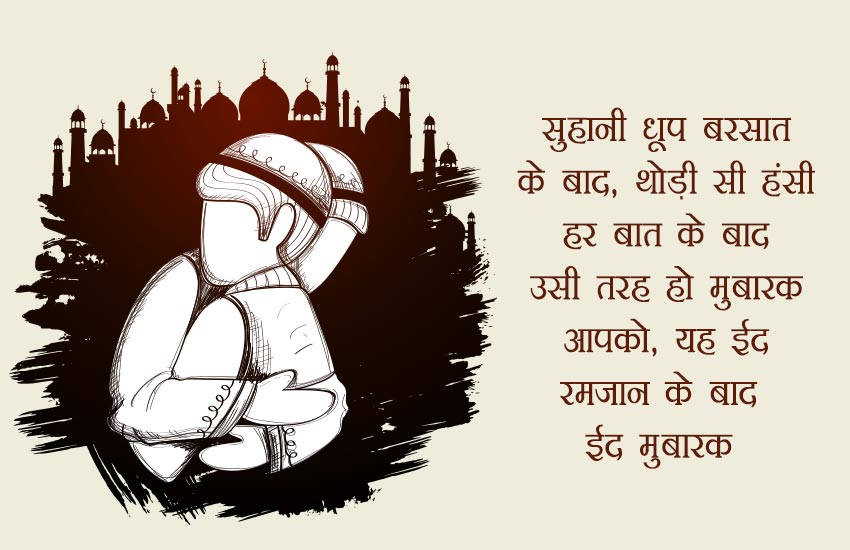 सुहानी धूप बरसात
के बाद, थोड़ी सी हंसी
हर बात के बाद
उसी तरह हो मुबारक
आपको, यह ईद
रमजान के बाद
ईद मुबारक